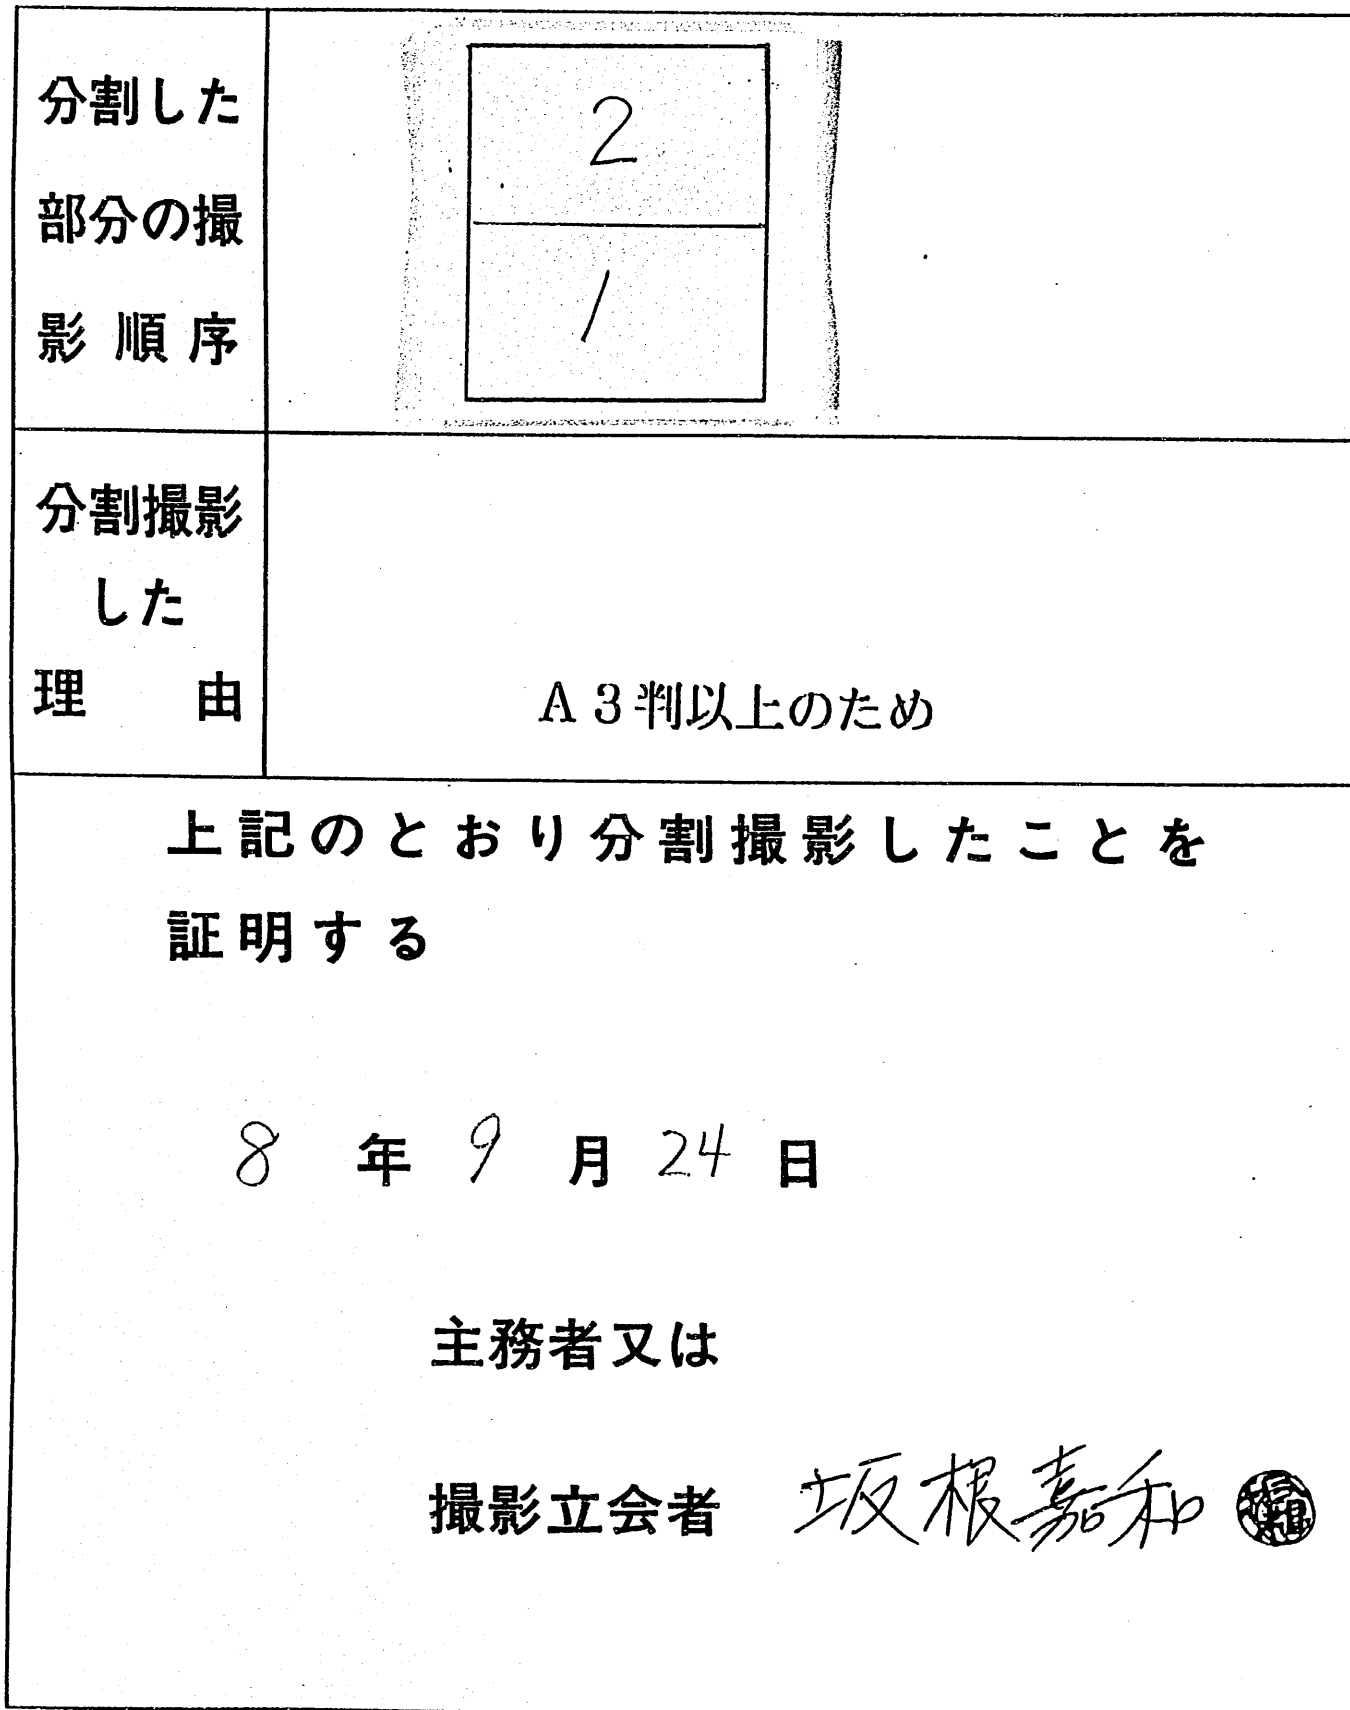 分割した
部分の撮
影順序
2
1
分割撮影
した
理由
A3判以上のため
上記のとおり分割撮影したことを
証明する
8年9月24日
主務者又は
撮影立会者 坂根嘉和